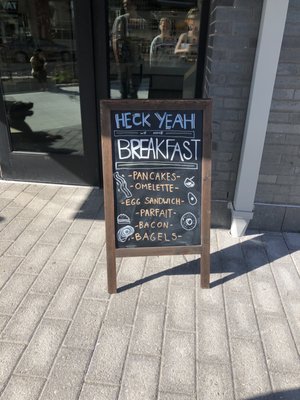 HECK YEAH
BREAKFAST
-PANCAKES-
-OMELETTE-
-EGG SANDWICH-
-PARFAIT-
-BACON-
-BAGELS-